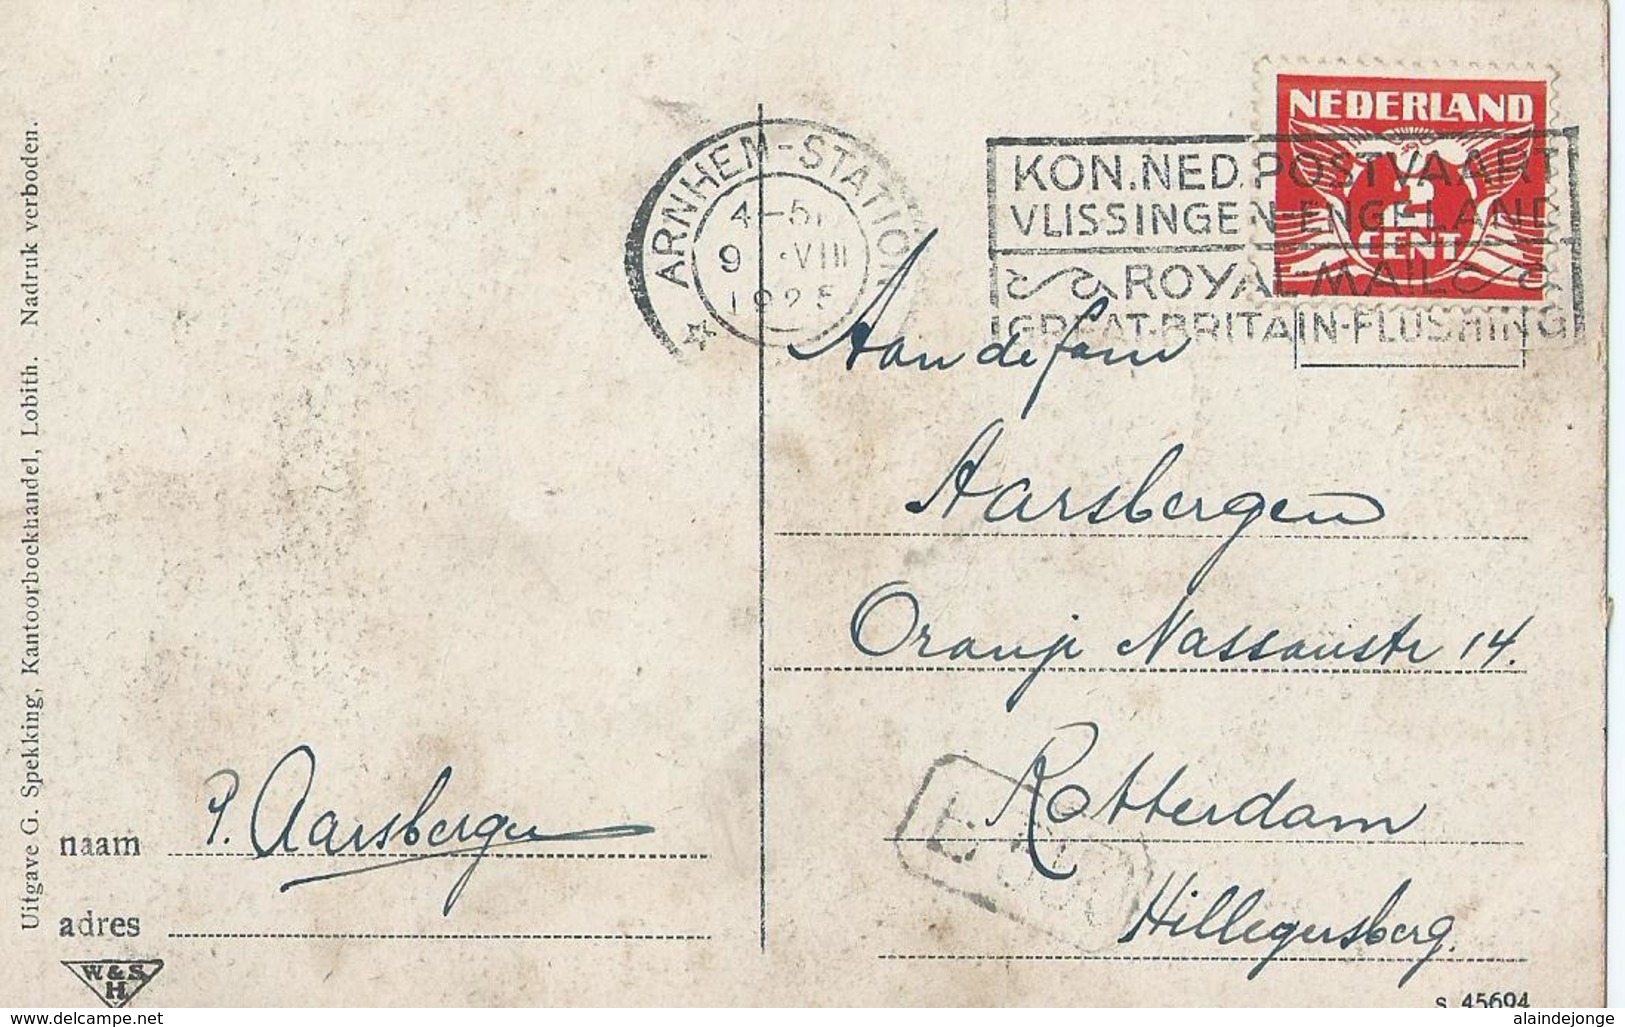 Uitgave G. Spekking, Kantoorboekhandel, Lobith. Nadruk verboden.
ARNHEM-STATION
4-5
9 VIII
1925
NEDERLAND
2
CENT
KON. NED. POSTVAART
VLISSINGEN-ENGELAND
ROYAL-MAIL
GREAT-BRITAIN-FLUSHING
Aan de fam
Aarsbergen
Oranje Nassaustr 14.
Rotterdam
Hillegersberg.
naam P. Aarsbergen
adres
W. & S.
H
S. 45604
www.delcampe.net
alaindejonge